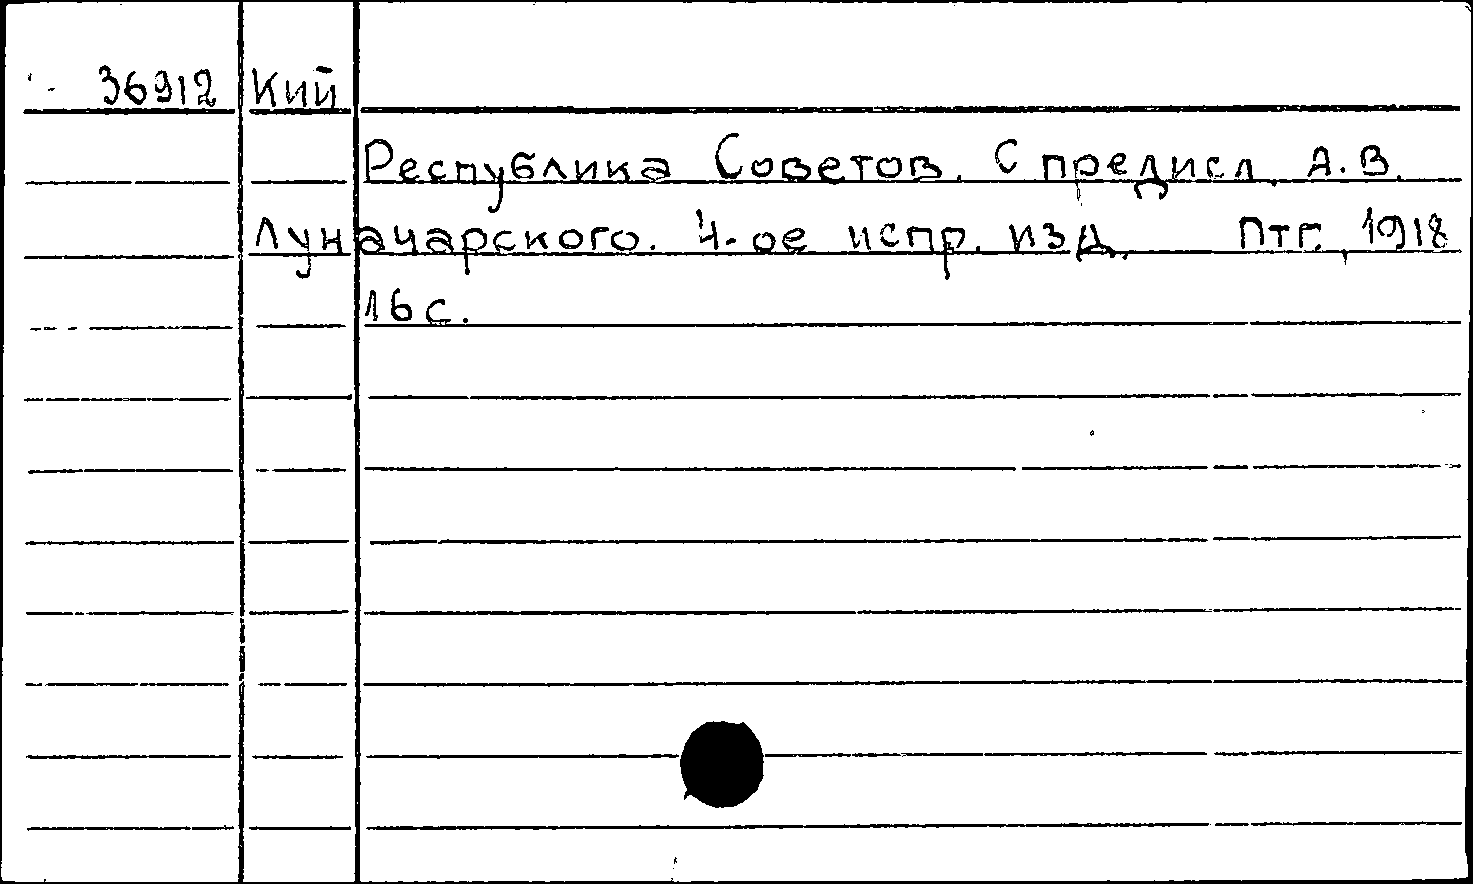 36912 Кий
Республика Советов. С предисл. А.В.
Луначарского. 4-ое испр. изд. Птг., 1918
16 с.